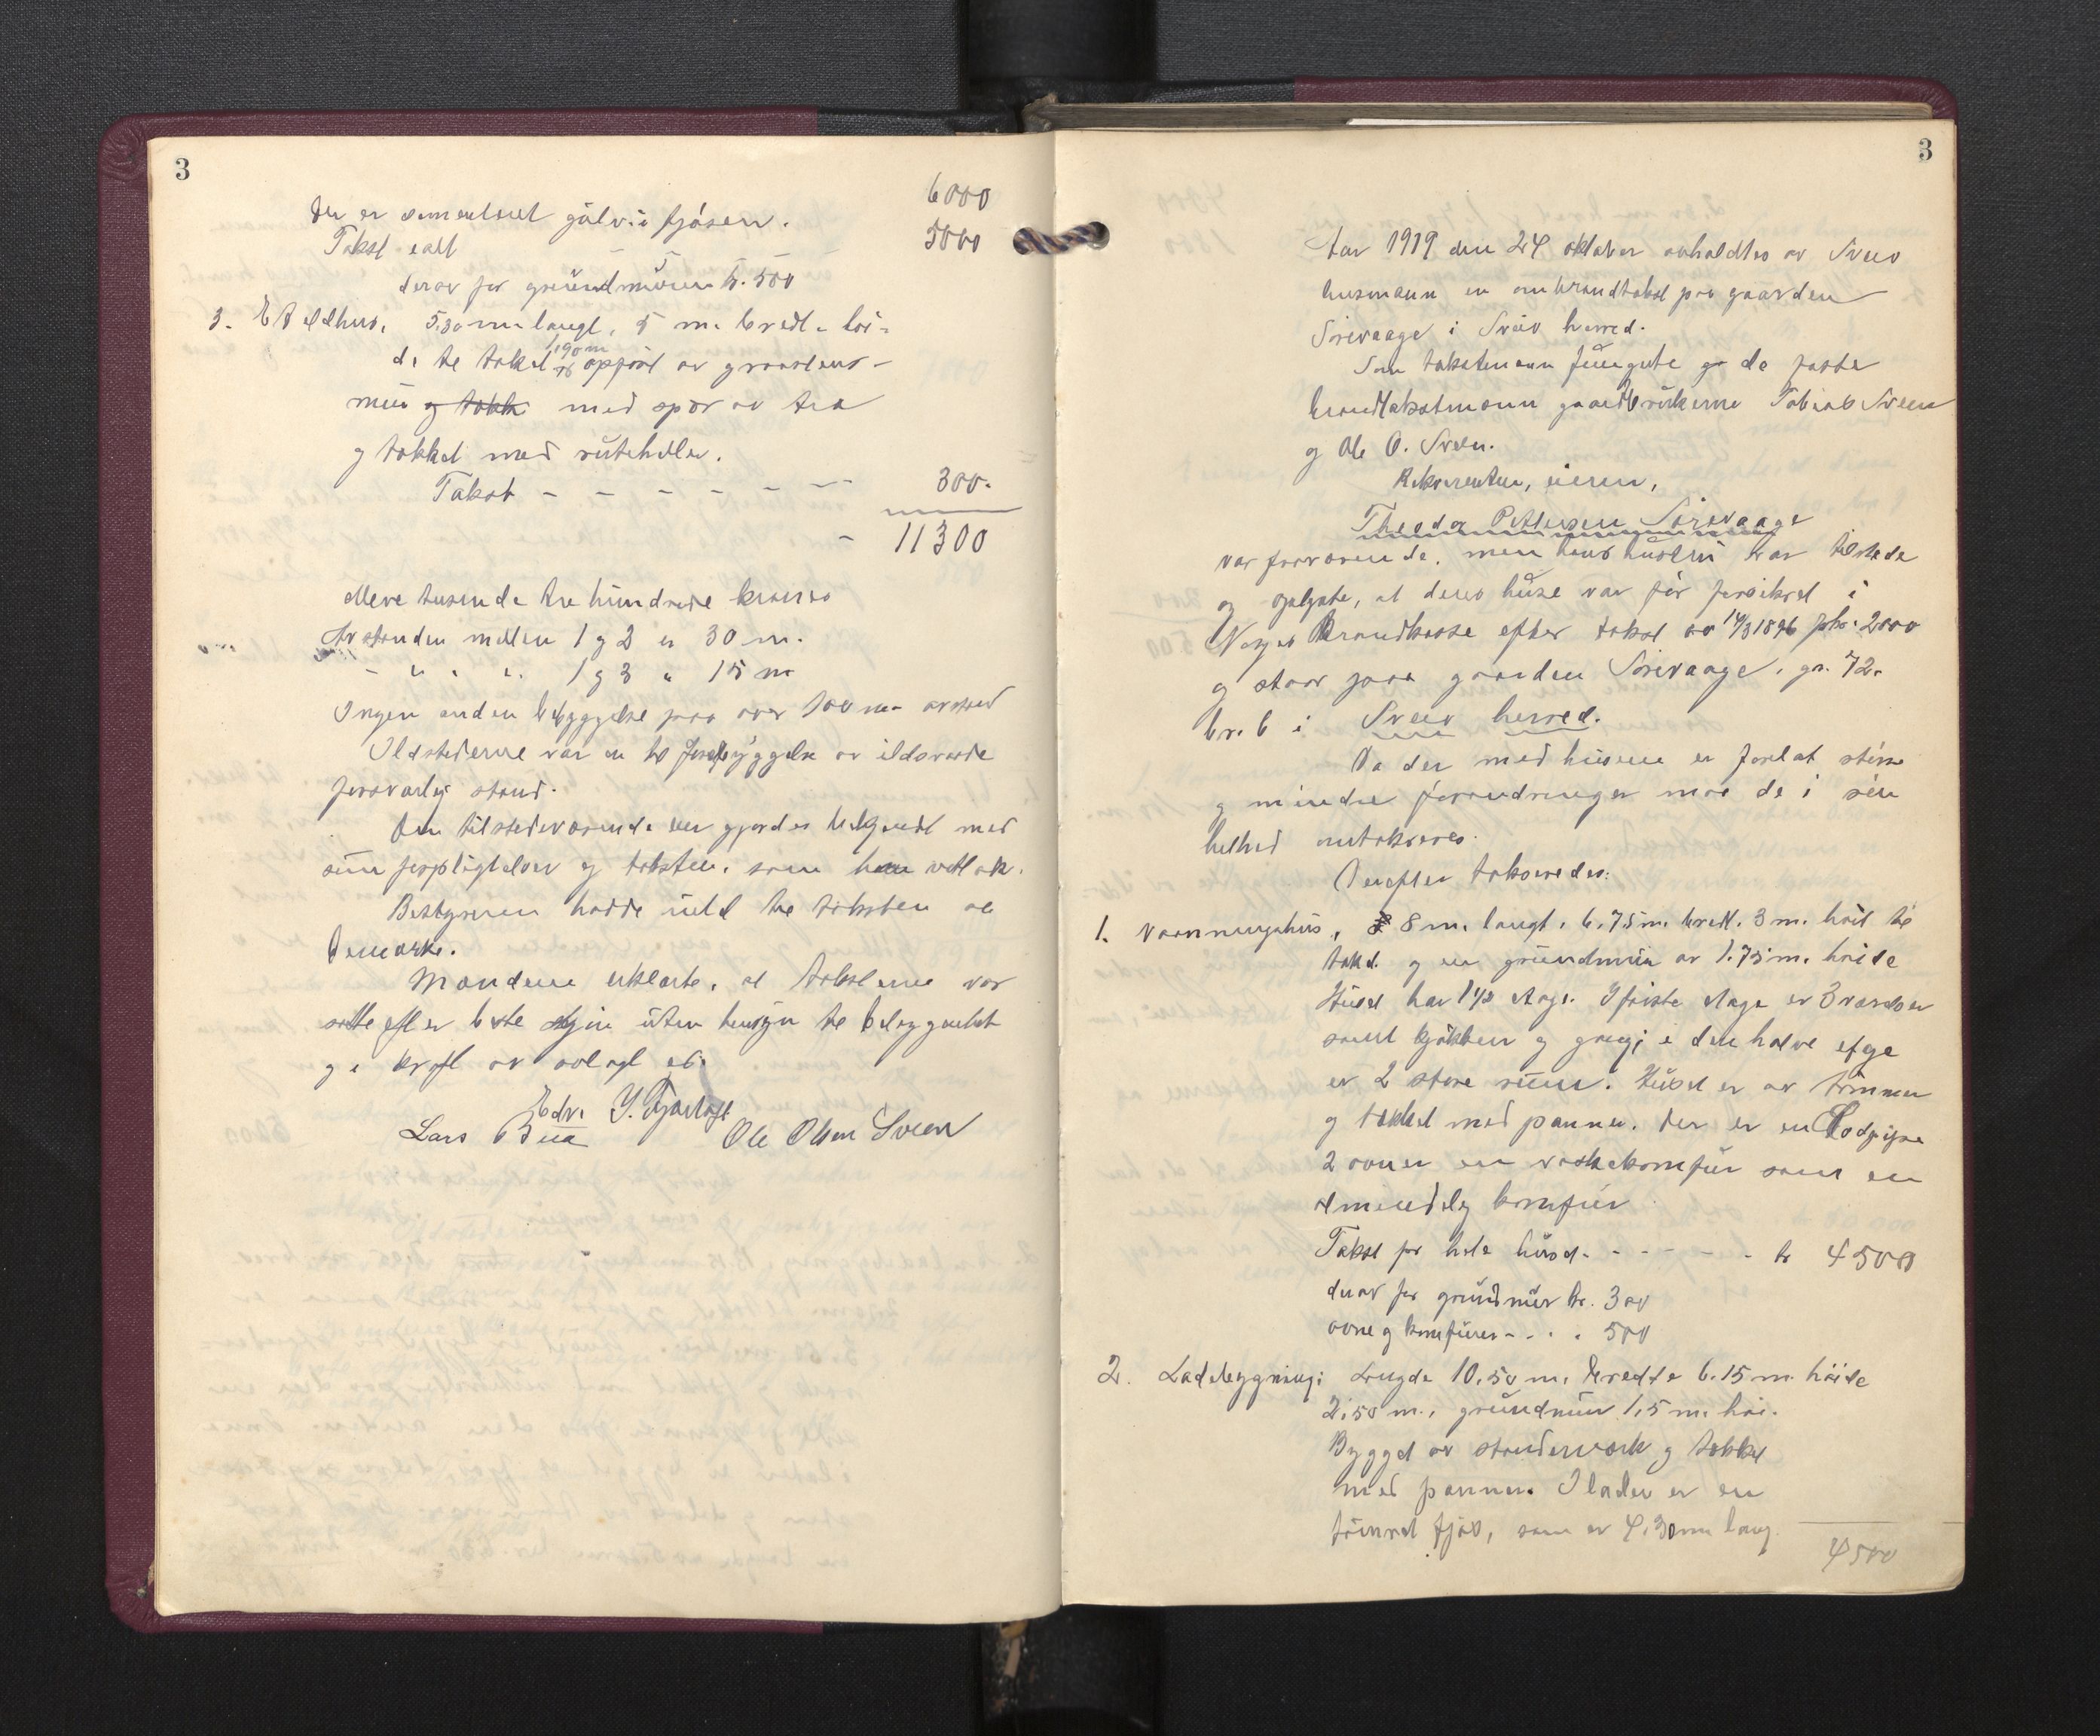 3
6000
Der er sementeret gulv i fjøsen.
Takst ialt 5000
derav for grundmuren kr. 500
3. Et eldhus, 5,30 m. langt, 5 m. bredt, høi-
de til taket 1,90 m opført av graastens-
mur og takk med spær av træ
og takket med ruteheller.
Takst - - - - - - - 300.
- 11300
Elleve tusinde tre hundrede kroner
Avstanden mellem 1 og 2 er 30 m.
- " " " 1 og 3 " 15 m
Ingen anden bebyggelse paa over 100 m. avstand
Ildstederne var til forebyggelse av ildsvaade
forsvarlig stand.
Den tilstedeværende eier gjordes bekjendt med
sine forpligtelser og taksten, som han vedtok.
Bestyreren hadde intet til taksten at
bemærke.
Mændene erklærte, at taksterne var
satte efter beste skjøn uten hensyn til belaggenhet
og i kraft av avlagt ed.
Edv. Y. Fjortoft
Lars Bua Ole Olsen Sveen
3
Aar 1919 den 24 oktober avholdtes av Sveio
lensmann en ombrandtakst paa gaarden
Sørevaage i Sveio herred.
Som takstmenn fungerte de faste
brandtakstmenn gaardbrukerne Tobias Sveen
og Ole O. Sveen.
Rekvirenten, eieren,
Theodor Pettersen Sørevaage
var fraværende, men hans hustru var tilstede
og oplyste, at deres huse var før forsikret i
Norges Brandkasse efter takst av 14/3 1896 for kr. 2000
og staar paa gaarden Sørevaage, gr. 72.
br. 6 i Sveio herred.
Da der med husene er foretat større
og mindre forandringer maa de i sin
helhed omtakseres.
Derefter takseredes:
1. Vaaningshus, 8 m. langt, 6,75 m. bredt, 3 m. høit til
taket og en grundmur av 1.75 m. høide
Huset har 1 1/2 etage. I første etage er 3 værelser
samt kjøkken og gang; i den halve etage
er 2 store rum. Huset er av tømmer
og tækket med panner. Der er en Rodpipe
2 ovner en vaskekomfur samt en
almindelig komfur
Takst for hele huset - - - - - - kr 4500
derav for grundmur kr. 300
ovne og komfurer - - - 500
2. Ladebygning: Længde 10,50 m. bredde 6.15 m. høide
2,50 m., grundmur 1,5 m. høi.
Bygget av standerværk og tækket
med panner. I laden er en
tømret fjøs, som er 4,30 m lang
4500